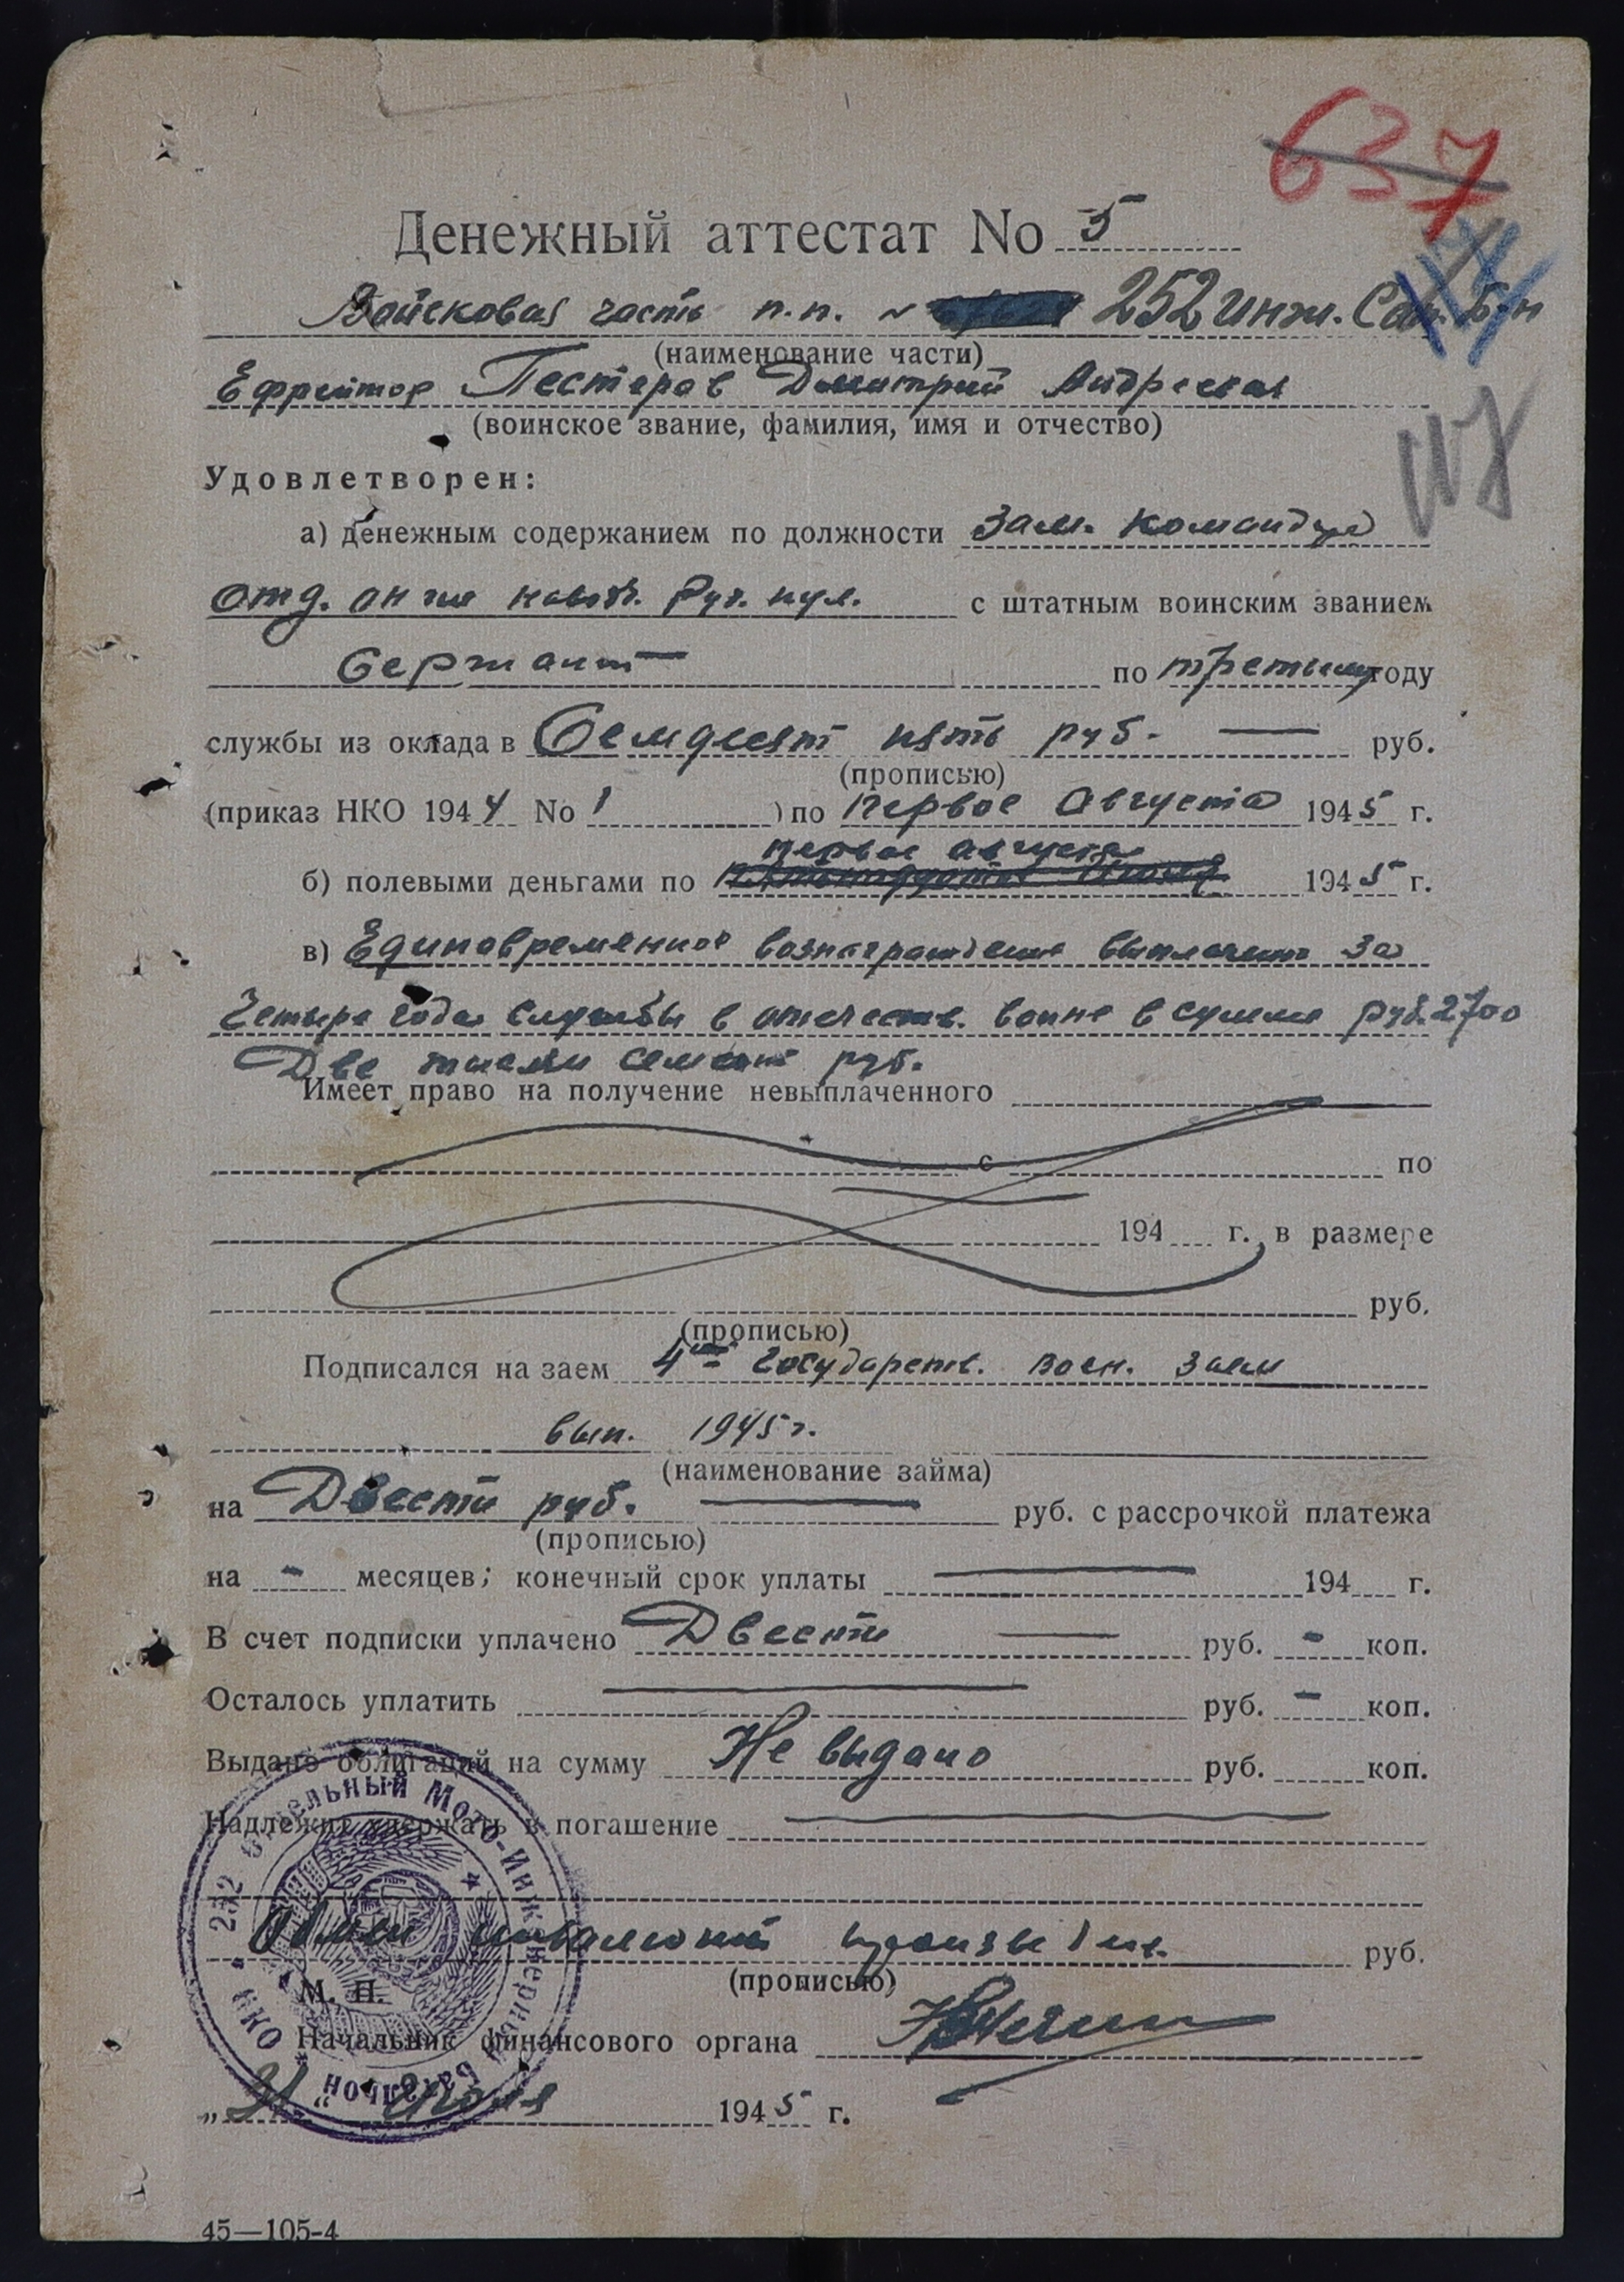 637
Денежный аттестат No 5
Войсковая часть п.п. № 252 инж. Сап. Б-н
(наименование части)
Ефрейтор Пестерев Дмитрий Андреевич
(воинское звание, фамилия, имя и отчество)
117
Удовлетворен:
а) денежным содержанием по должности Зам. командира
отд. он же наводч. Руч. пул. с штатным воинским званием
Сержант по третьему году
службы из оклада в Семдесят пять руб. — руб.
(прописью)
(приказ НКО 1944 No 1 ) по первое Августа 1945 г.
первое августа
б) полевыми деньгами по 1945 г.
в) Единовременное вознаграждение выплачено за
Четыре года службы в отечеств. войне в сумме руб. 2700
Две тысячи семьсот руб.
Имеет право на получение невыплаченного
с по
194 г. в размере
руб.
(прописью)
Подписался на заем 4ый Государств. воен. заем
вып. 1945 г.
(наименование займа)
на Двести руб. — руб. с рассрочкой платежа
(прописью)
на - месяцев; конечный срок уплаты — 194 г.
В счет подписки уплачено Двести — руб. - коп.
Осталось уплатить — руб. - коп.
Выдано облигаций на сумму Не выдано руб. коп.
Надлежит удержать в погашение —
Обмен инвалютой произведен. руб.
(прописью)
М. П.
252 Отдельный Мото-Инженерный батальон НКО
Начальник финансового органа
" " Июля 1945 г.
45—105-4